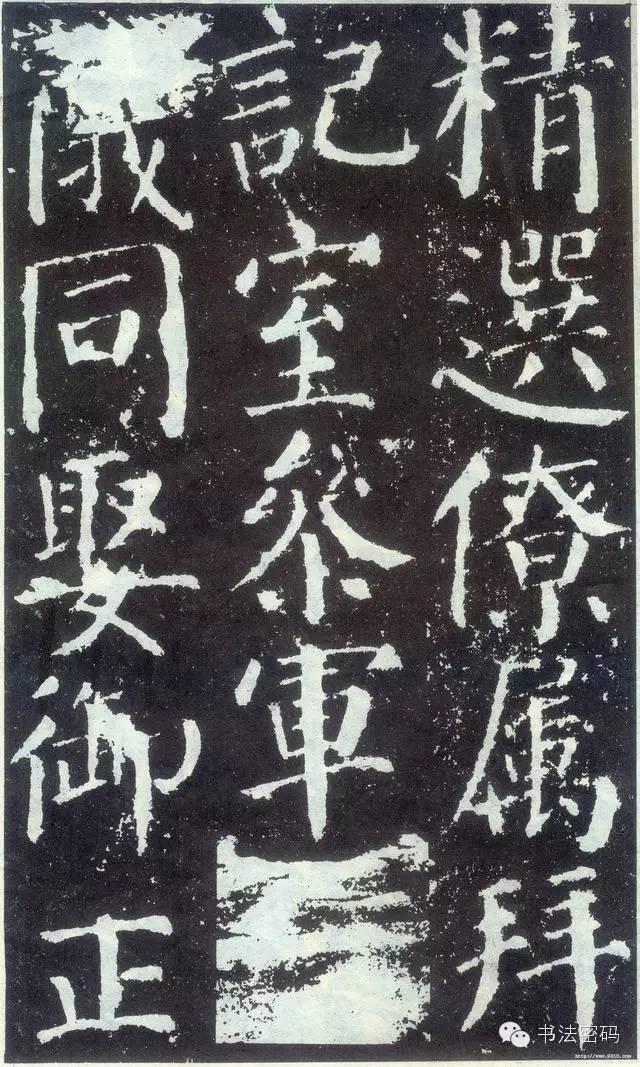 精選僚属拜
記室叅軍
儀同娶御正
书法密码
http://www.9610.com